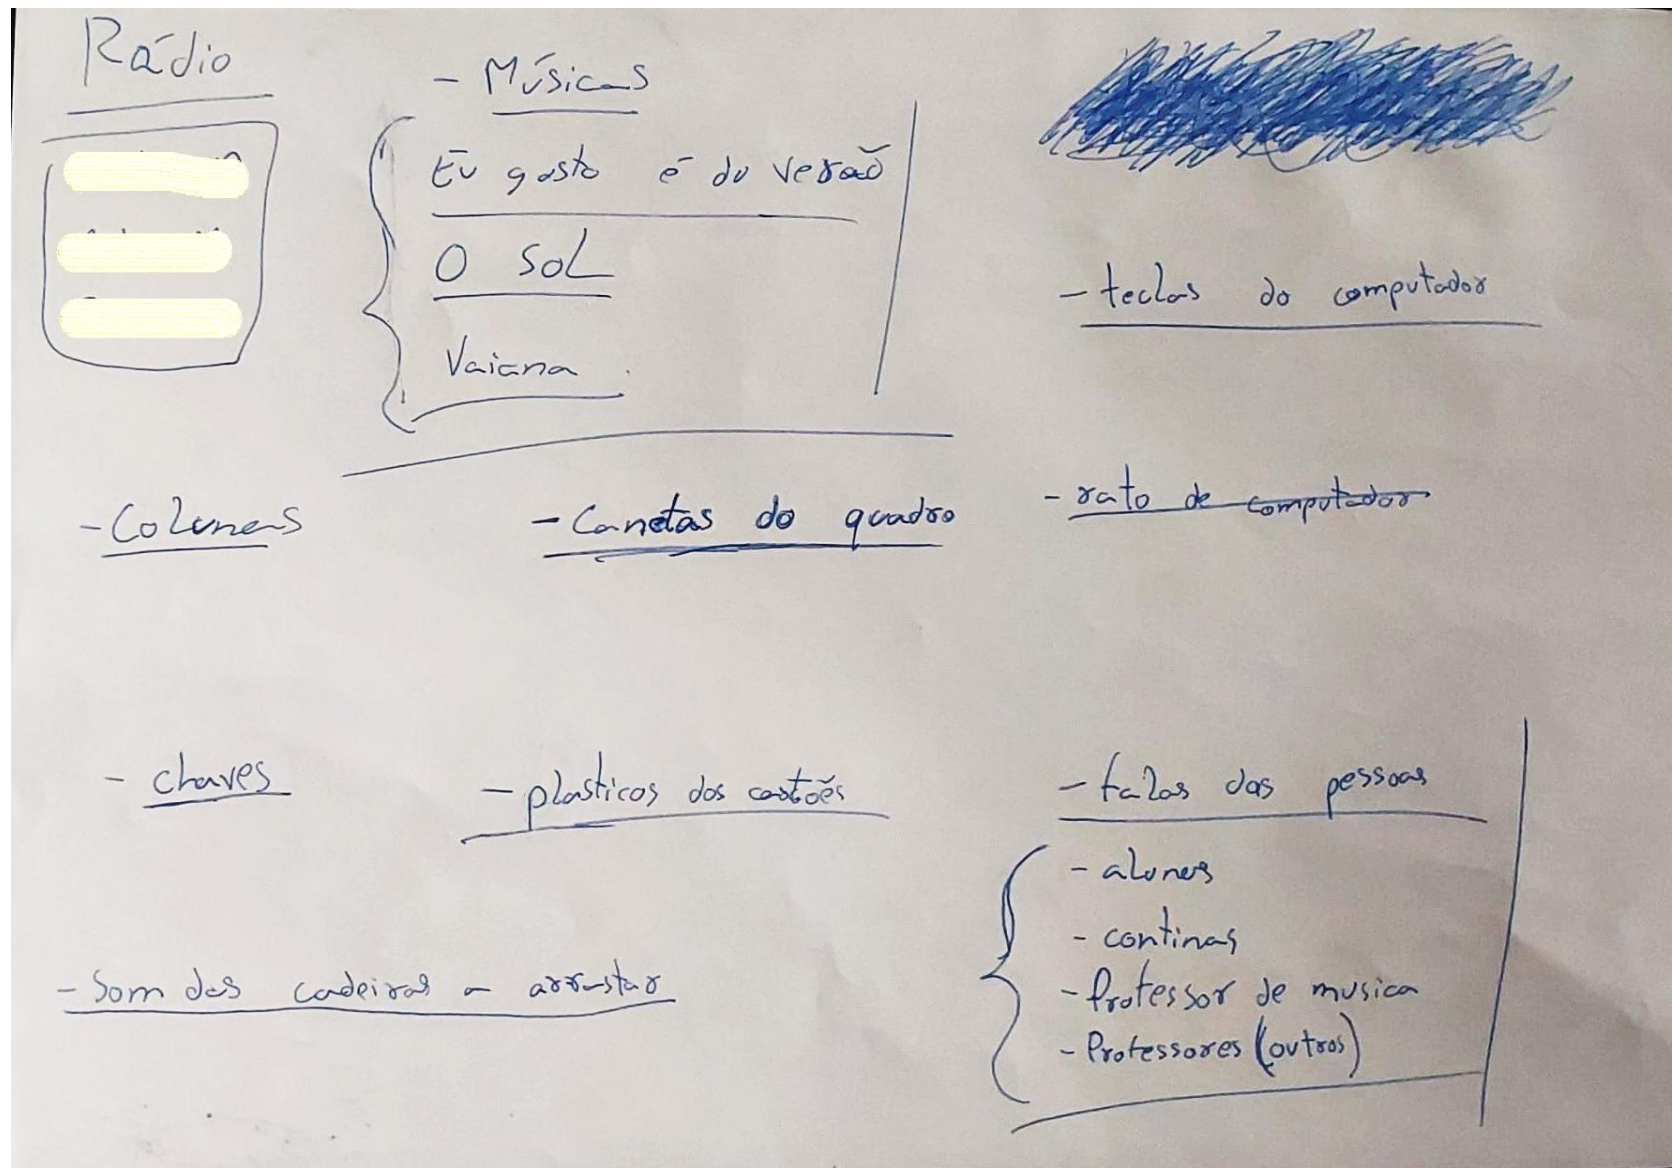 Rádio
- Músicas
Eu gosto é do verão
O SOL
Vaiana
- teclas do computador
- Colunas
- Canetas do quadro
- rato de computador
- chaves
- plasticos dos cartões
- falas das pessoas
- alunos
- continas
- Professor de musica
- Professores (outros)
- Som das cadeiras a arrastar